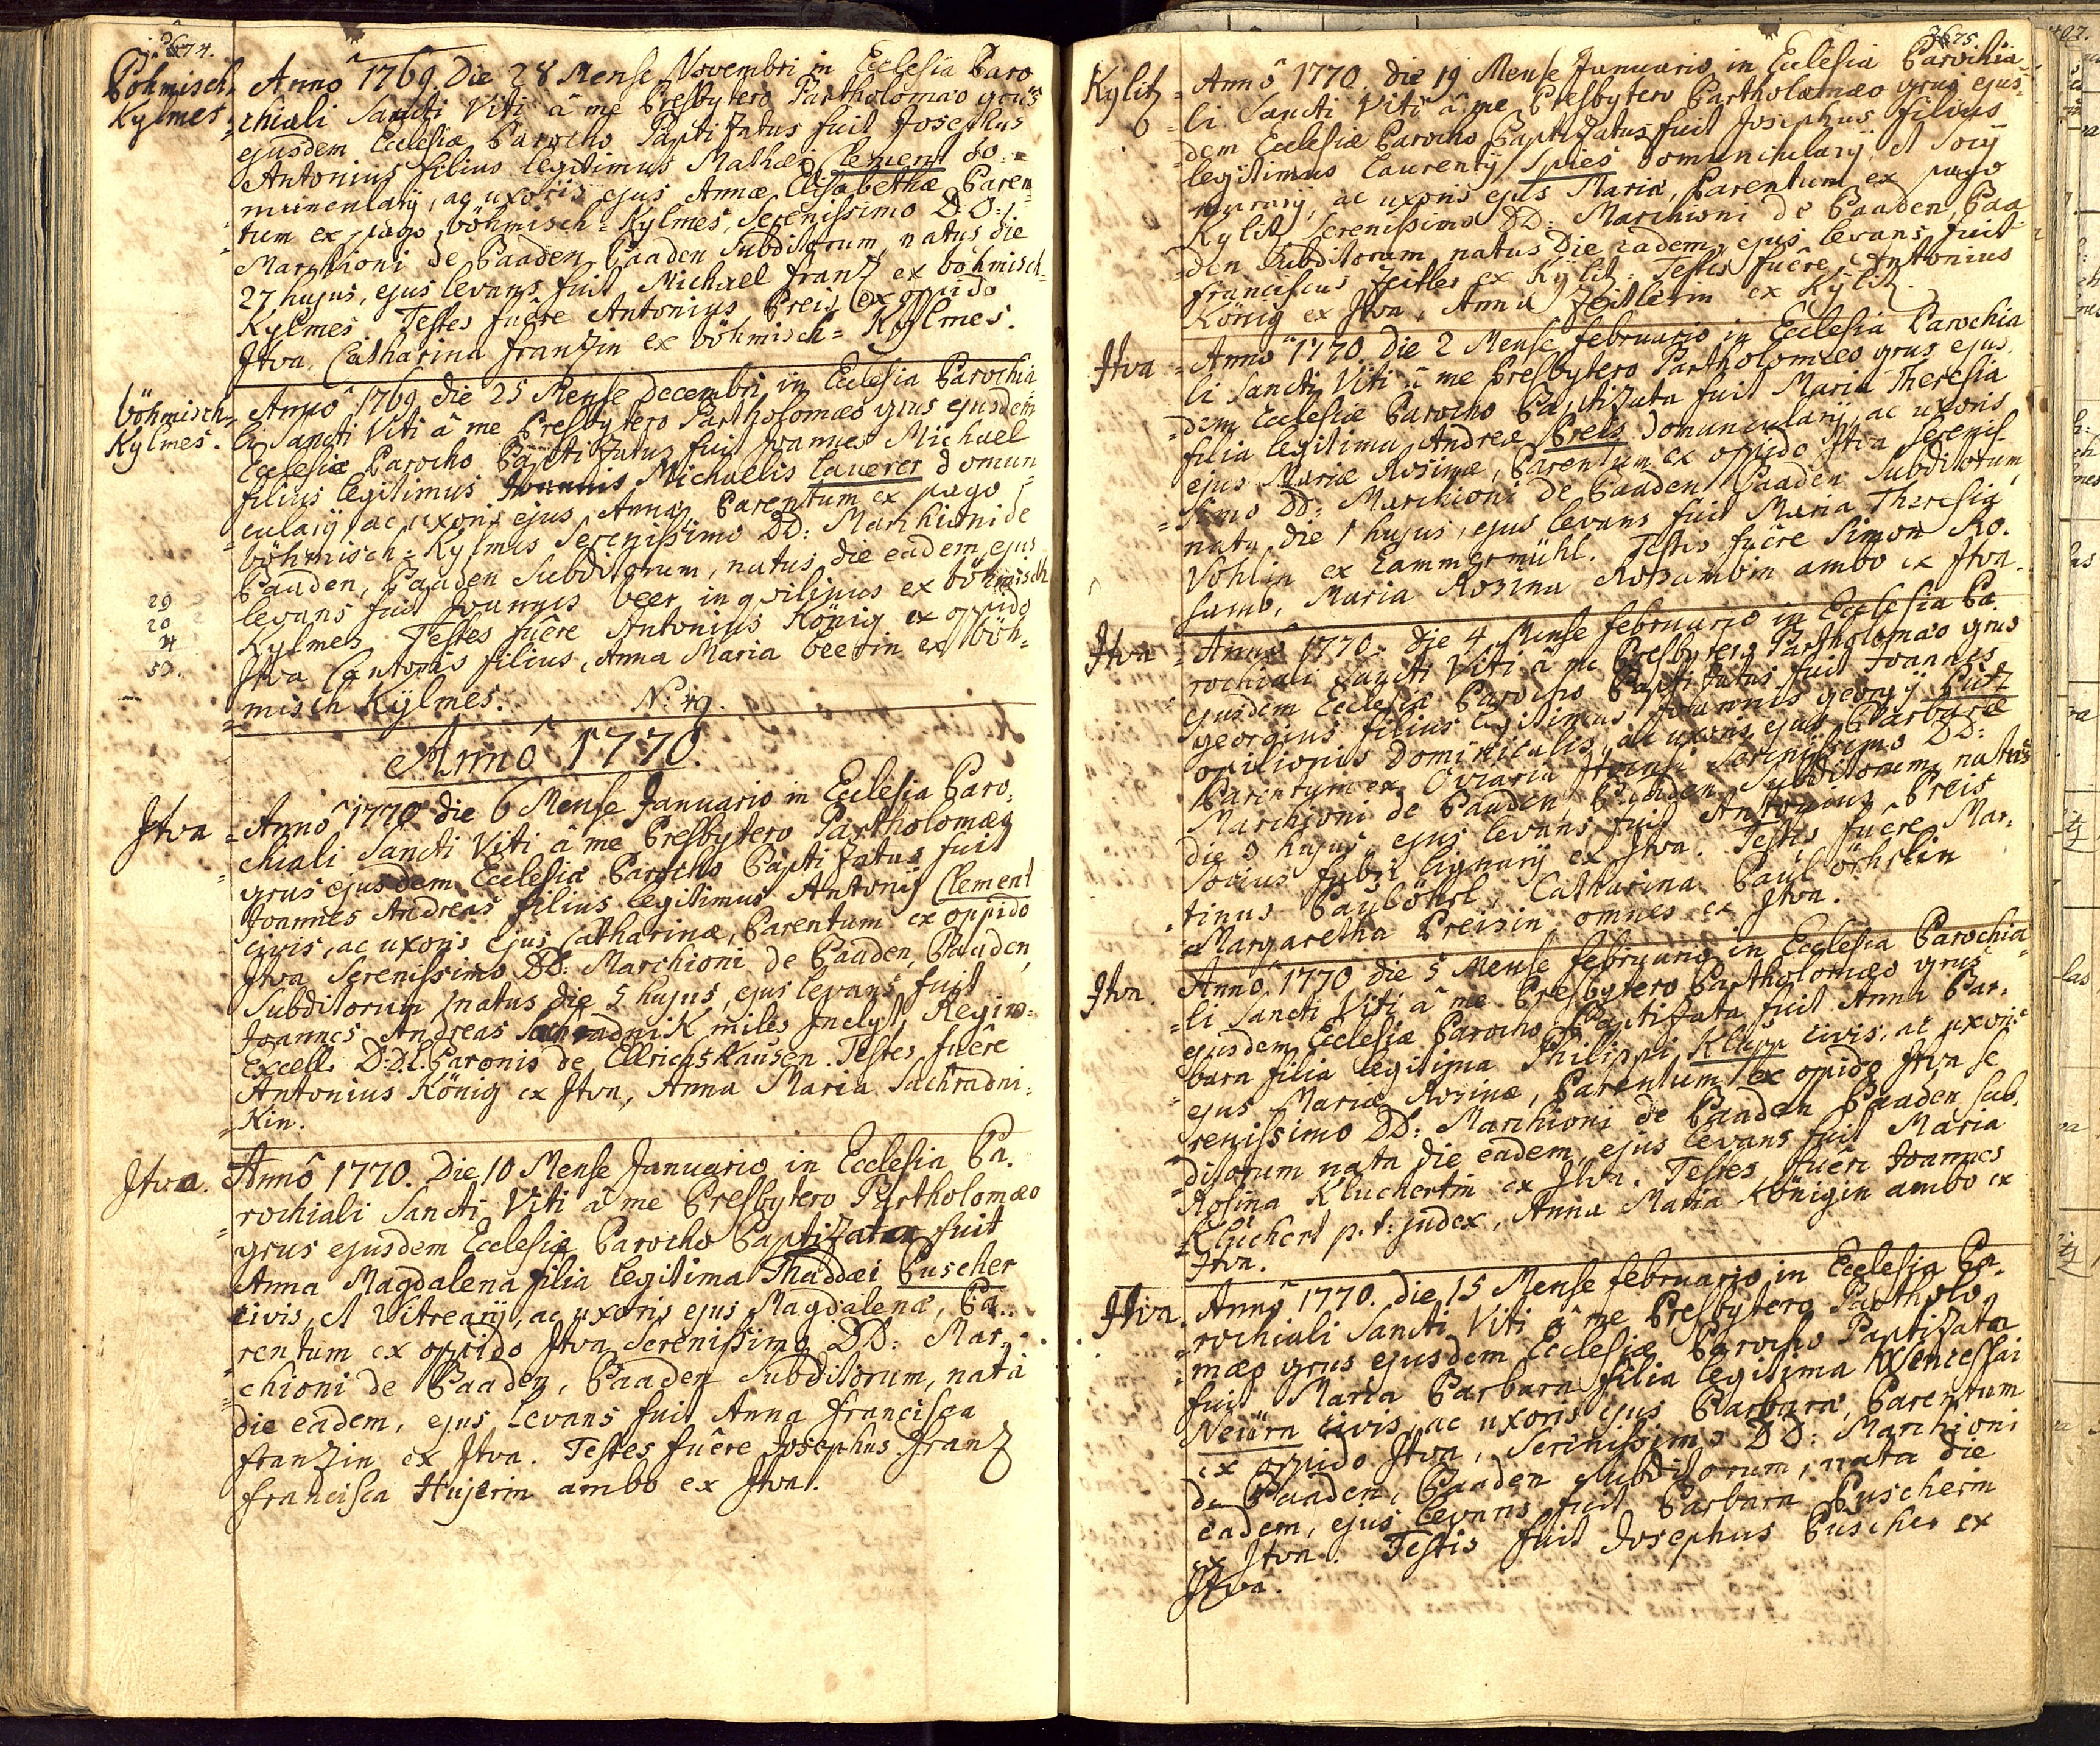 674.
Böhmisch-
Kylmes.
Anno 1769 Die 28 Mense Novembri in Ecclesia Paro
chiali Sancti Viti â me Presbytero Partholomæo grus
ejusdem Ecclesiæ Parocho Paptizatus fuit Josephus
Antonius filius legitimus Mathæi Clement do=
muncularij, ac uxoris ejus Annæ Elisabethæ Paren
tum ex pago böhmisch=Kylmes, Serenissimo D.D:
Marchioni de Paaden Paaden Subditorum, natus die
27 hujus, ejus levans fuit, Michael franz ex böhmisch=
Kylmes. Testes fuêre Antonius Preis ex oppido
Jtva, Catharina franzin ex böhmisch=Kylmes.
böhmisch-
Kylmes.
Anno 1769 die 25 Mense decembri in Ecclesia Parochia
li Sancti Viti â me Presbytero Partholomæo grus ejusdem
Ecclesiæ Parocho Paptizatus fuit Joannes Michael
filius legitimus Michaelis Lauerer domun
cularij ac uxoris ejus Annæ Parentum ex pago
böhmisch=Kylmes Serenissimo DD: Marchioni de
Paaden, Paaden Subditorum, natus die eadem, ejus
levans fuit Joannes beer inqvilinus ex böhmisch
Kylmes. Testes fuêre Antonius König ex oppido
Jtva Cantoris filius, Anna Maria beerin ex böh=
misch Kÿlmes.
29
20
4
50.
Anno 1770.
Jtva
Anno 1770 die 6 Mense Januario in Ecclesia Paro,
chiali Sancti Viti â me Presbytero Partholomæo
grus ejusdem Ecclesiæ Parocho Paptizatus fuit
Joannes Andreas filius legitimus Antonij Clement
civis, ac uxoris ejus Catharinæ, Parentum ex oppido
Jtva Serenissimo DD: Marchioni de Paaden, Paaden,
Subditorum, natus die 5 hujus, ejus levans fuit
Joannes Andreas Sachradnik miles Jnclyt. Regim:
Excell. D:D:L: Paronis de Ellrichshausen. Testes fuêre
Antonius König ex Jtva, Anna Maria Sachradni=
kin.
Jtva.
Anno 1770. Die 10 Mense Januario in Ecclesia Pa.
rochiali Sancti Viti â me Presbytero Partholomæo
grus ejusdem Ecclesiæ Parocho Paptizata fuit
Anna Magdalena filia legitima Thaddæi Puscher
civis, et Vitrearij, ac uxoris ejus Magdalenæ, Pa..
rentum ex oppido Jtva Serenissimo DD: Mar=
chioni de Paaden, Paaden Subditorum, nata
die eadem, ejus levans fuit Anna francisca
franzin ex Jtva. Testes fuêre Josephus Franz
francisca Hujerin ambo ex Jtva.
675.
Kylitz
Anno 1770 die 19 Mense Januario in Ecclesia Parochia
li Sancti Viti â me Presbytero Partholomæo grus ejus=
dem Ecclesiæ Parocho Paptizatus fuit Josephus filius
legitimus Laurentij Spies domuncularij, et Socij
murarij, ac uxoris ejus Mariæ, Parentum ex pago
Kylitz Serenissimo DD: Marchioni de Paaden, Paa
den Subditorum natus Die eadem, ejus levans fuit
franciscus Zeitler ex Kÿlitz. Testes fuêre Antonius
König ex Jtva, Anna Zeitlerin ex Kÿlitz.
Jtva
Anno 1770 Die 2 Mense februario in Ecclesia Parochia
li Sancti Viti â me Presbytero Partholomæo grus ejus.
dem Ecclesiæ Parocho Paptizata fuit Maria Theresia
filia legitima Andreæ Preis domuncularij, ac uxoris
ejus Mariæ Rosinæ, Parentum ex oppido Jtva Serenis
simo DD: Marchioni de Paaden Paaden Subditorum,
nata die 1 hujus, ejus levans fuit Maria Theresia
Vohlin ex Cammermühl. Testes fuêre Simon Ro.
samb, Maria Rosina Rosambin ambo ex Jtva.
Jtva
Anno 1770. Die 4 Mense februario in Ecclesia Pa.
rochiali Sancti Viti â me Presbytero Partholomæo grus
ejusdem Ecclesiæ Parocho Paptizatus fuit Joannes
georgius filius legitimus Joannis georgij
opilionis Dominicalis, ac uxoris ejus Barbaræ
Parentum ex Oviaria Jtvensi Serenissimo DD:
Marchioni de Paaden, Paaden Subditorum, natus
die 3 hujus, ejus levans fuit Antonius Preis
Socius fabri lignarij ex Jtva. Testes fuêre Mar.
tinus Paulöhrl, Catharina Paulöhrlin
Margaretha Preisin omnes ex Jtva.
Jtva.
Anno 1770 die 5 Mense februario in Ecclesia Parochia
li Sancti Viti â me Presbytero Partholomæo grus
ejusdem Ecclesiæ Parocho Paptizata fuit Anna Bar.
bara filia legitima Philippi Klupp civis, ac uxoris
ejus Mariæ Rosinæ, Parentum ex oppido Jtva Se
renissimo DD: Marchioni de Paaden Paaden Sub.
ditorum nata die eadem, ejus levans fuit Maria
Rosina Kluchertin ex Jtva. Testes fuêre Joannes
Kluchert p.t: judex, Anna Maria Königin ambo ex
Jtva.
Jtva.
Anno 1770. die 15 Mense februario in Ecclesia Pa.
rochiali Sancti Viti â me Presbytero Partholo.
mæo grus ejusdem Ecclesiæ Parocho Paptizata
fuit Maria Barbara filia legitima Wenceslai
Neiüra civis, ac uxoris ejus Barbaræ, Parentum
ex oppido Jtva, Serenissimo DD: Marchioni
de Paaden, Paaden Subditorum, nata die
eadem, ejus levans fuit Barbara Puscherin
ex Jtva. Testis fuit Josephus Puscher ex
Jtva.